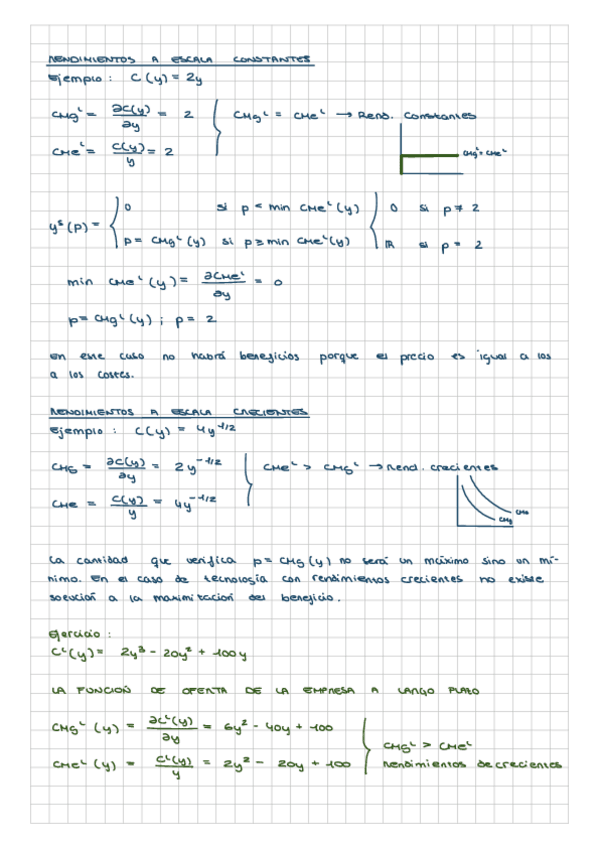 RENDIMIENTOS A ESCALA CONSTANTES
Ejemplo: C(y) = 2y
CMg^L = ∂C(y)/∂y = 2 } CMg^L = CMe^L → Rend. constantes
CMg^L = CMe^L
CMe^L = C(y)/y = 2
y^s(p) = { 0 si p < min CMe^L(y) } 0 si p ≠ 2
p = CMg^L(y) si p ≥ min CMe^L(y) } ℝ si p = 2
min CMe^L(y) = ∂CMe^L/∂y = 0
p = CMg^L(y) ; p = 2
En este caso no habrá beneficios porque el precio es igual a los
a los costes.
RENDIMIENTOS A ESCALA CRECIENTES
Ejemplo: C(y) = 4y^1/2
CMg = ∂C(y)/∂y = 2y^-1/2 } CMe^L > CMg^L → Rend. crecientes
CMe = C(y)/y = 4y^-1/2
CMe
CMg
La cantidad que verifica p = CMg(y) no será un máximo sino un mí-
nimo. En el caso de tecnología con rendimientos crecientes no existe
solución a la maximitacion del beneficio.
Ejercicio:
C^L(y) = 2y^3 - 20y^2 + 100y
LA FUNCION DE OFERTA DE LA EMPRESA A LARGO PLAZO
CMg^L(y) = ∂C^L(y)/∂y = 6y^2 - 40y + 100 } CMg^L > CMe^L
CMe^L(y) = C^L(y)/y = 2y^2 - 20y + 100 } Rendimientos decrecientes